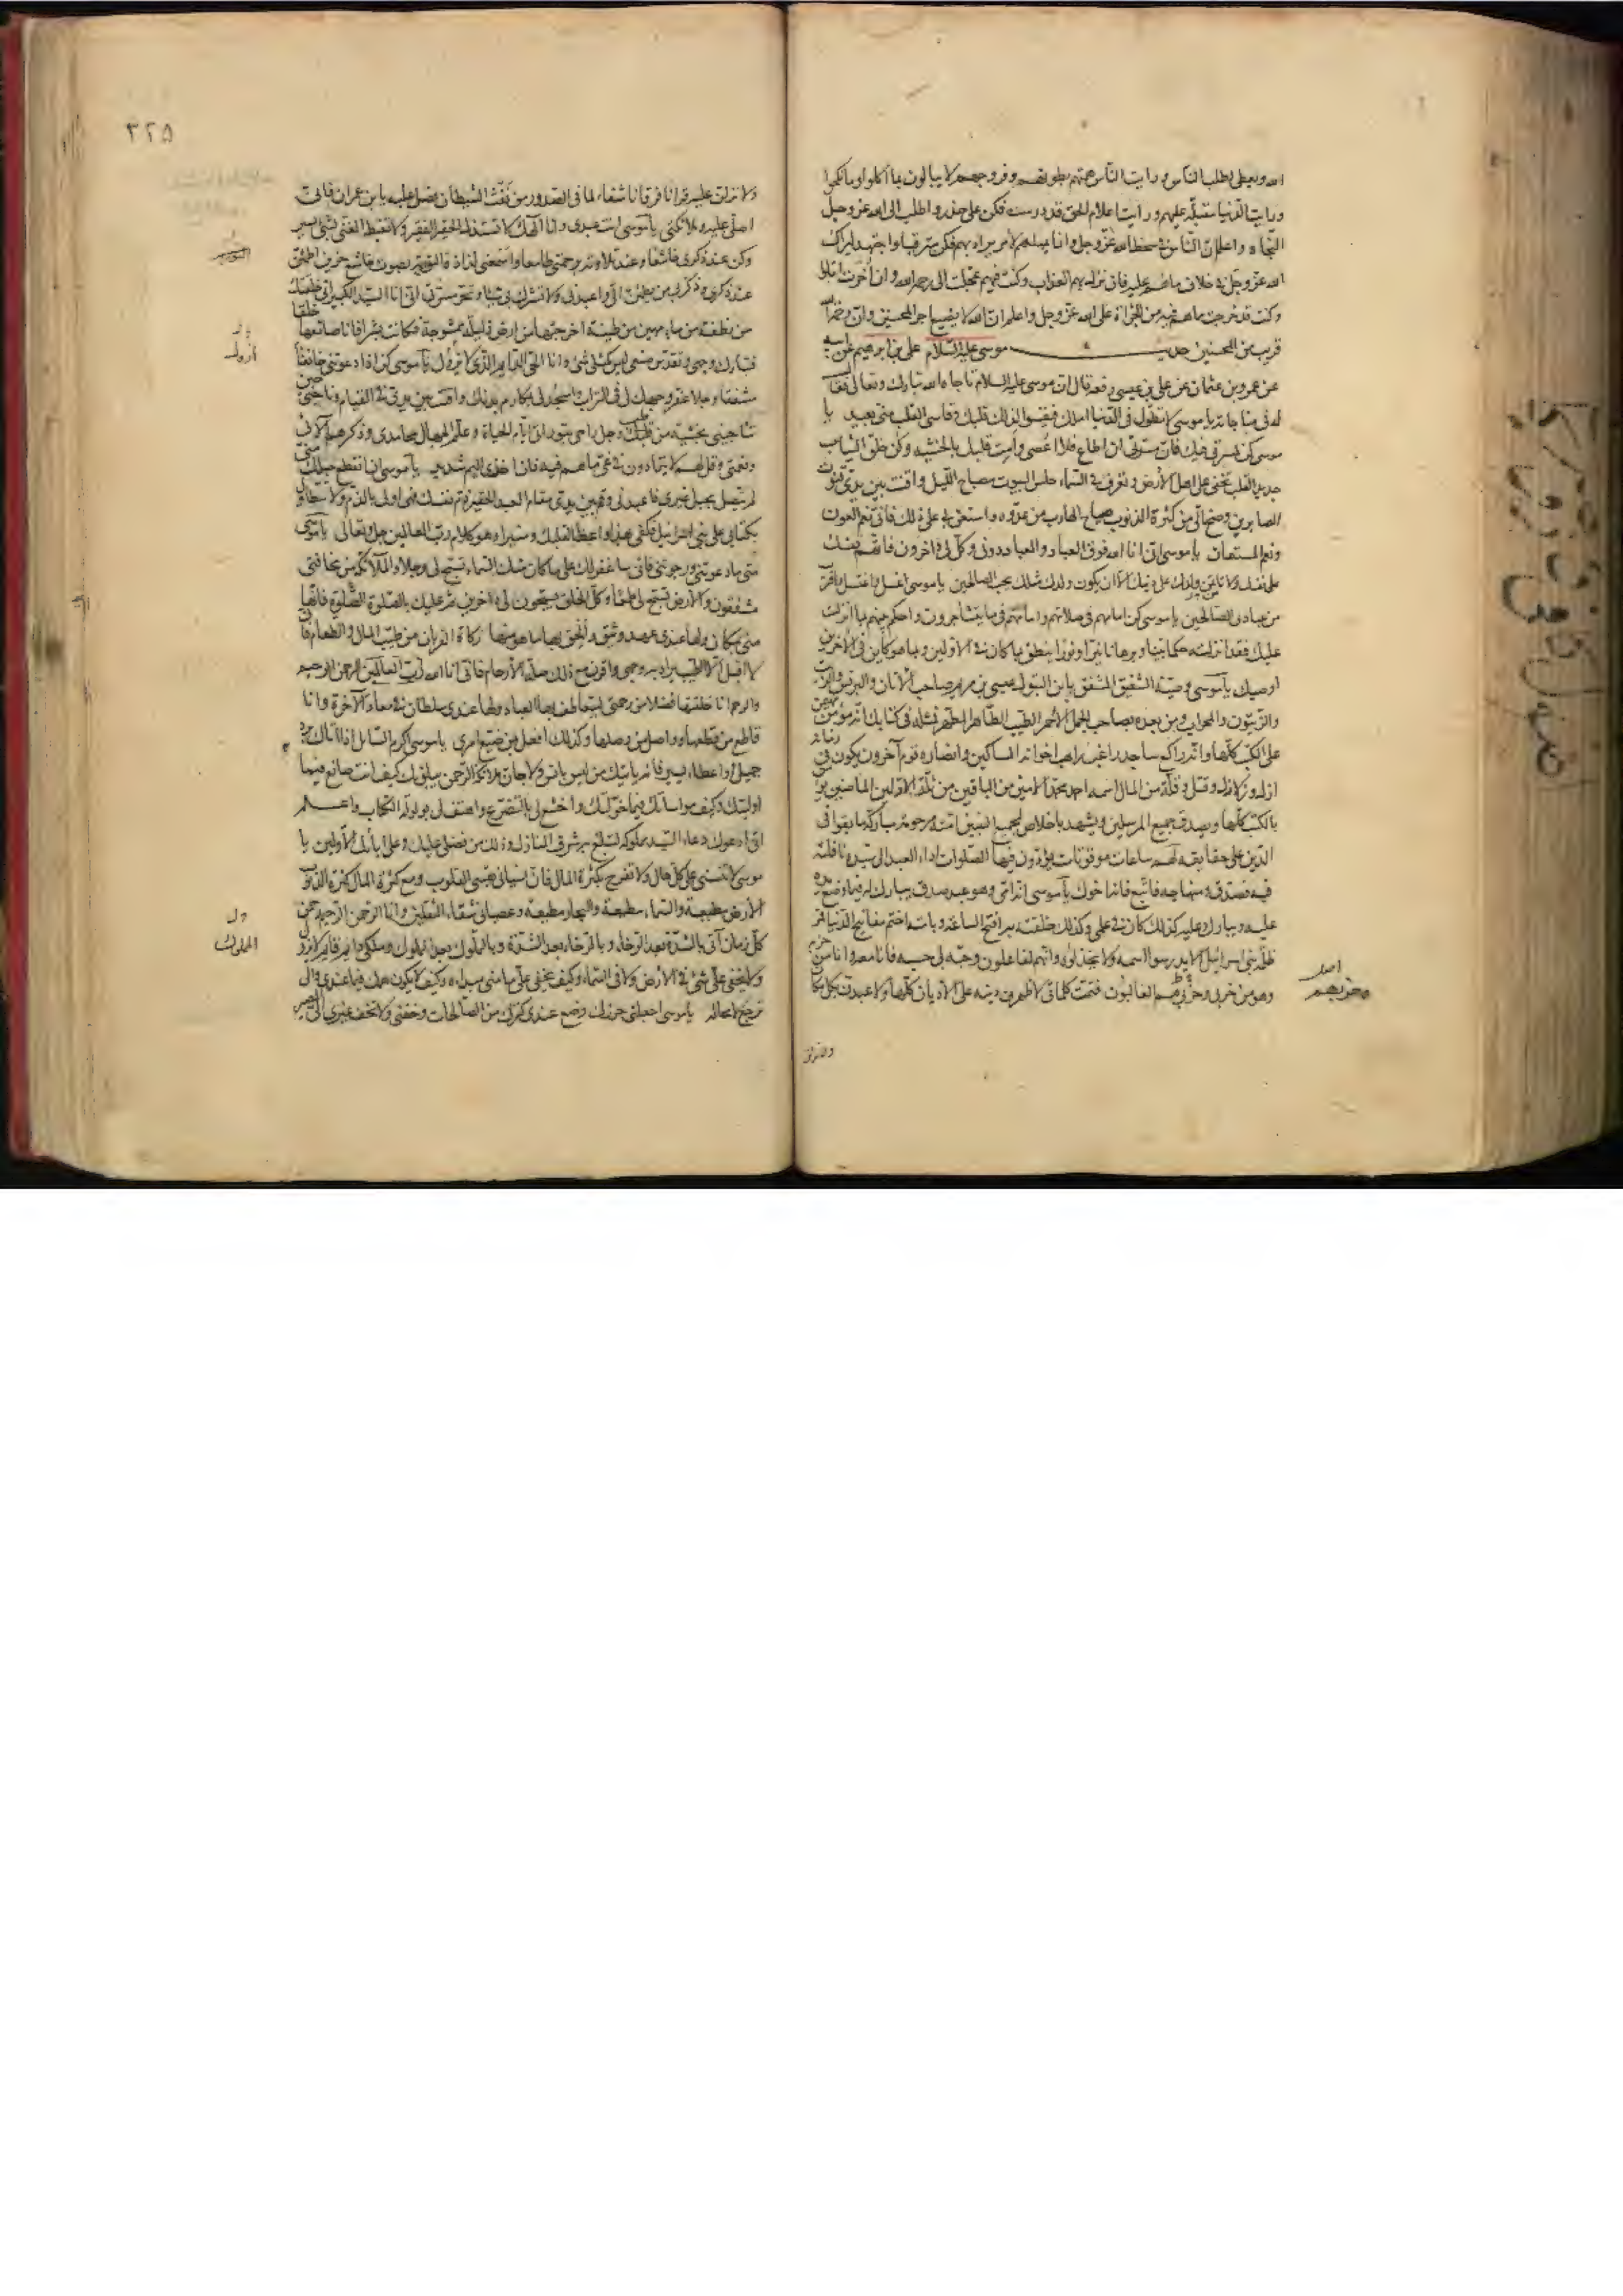 الله ويعطى لطلب الناس ورايت الناس همهم بطونهم وفروجهم لا يبالون بما اكلوا وما نكحوا
ورايت الدنيا مقبلة عليهم ورايت اعلام الحق قد درست فكن على حذر واطلب الى الله عز وجل
النجاة واعلم ان الناس في سخط الله عز وجل وانما يمهلهم لامر يراد بهم فكن مترقبا واجتهد ليراك
الله عز وجل في خلاف ما هم عليه فان نزل بهم العذاب وكنت فيهم عجلت الى رحمة الله وان اخرت ابتلوا
وكنت قد خرجت مما هم فيه من الجرأة على الله عز وجل واعلم ان الله لا يضيع اجر المحسنين وان رحمة الله
قريب من المحسنين حديث موسى عليه السلام علي بن ابرهيم عن ابيه
عن عمرو بن عثمان عن علي بن عيسى رفعه قال ان موسى عليه السلام ناجاه الله تبارك وتعالى فقال
له في مناجاته يا موسى لا تطول في الدنيا املك فيقسو لذلك قلبك وقاسي القلب مني بعيد يا
موسى كن كمسرتي فيك فان مسرتي ان اطاع فلا اعصى وامت قلبك بالخشية وكن خلق الثياب
جديد القلب تخفى على اهل الارض وتعرف في السماء حلس البيوت مصباح الليل واقنت بين يدي قنوت
الصابرين وصح الي من كثرة الذنوب صياح الهارب من عدوه واستعن بي على ذلك فاني نعم العون
ونعم المستعان يا موسى اني انا الله فوق العباد والعباد دوني وكل لي داخرون فاتهم نفسك
على نفسك ولا تأتمن ولدك على دينك الا ان يكون ولدك مثلك يحب الصالحين يا موسى اغسل واغتسل واقترب
من عبادي الصالحين يا موسى كن امامهم في صلاتهم وامامهم فيما يتشاجرون واحكم بينهم بما انزلت
عليك فقد انزلته حكما بينا وبرهانا نيرا ونورا ينطق بما كان في الاولين وبما هو كاين في الاخرين
اوصيك يا موسى وصية الشفيق المشفق بابن البتول عيسى بن مريم صاحب الاتان والبرنس والزيت
والزيتون والمحراب ومن بعده بصاحب الجمل الاحمر الطيب الطاهر المطهر فمثله في كتابك انه مؤمن مهيمن
على الكتب كلها وانه راكع ساجد راغب راهب اخوانه المساكين وانصاره قوم آخرون يكون في زمانه
ازل وزلازل وقتل وقلة من المال اسمه احمد محمد الامين من الباقين من ثلة الاولين الماضين يؤمن
بالكتب كلها ويصدق جميع المرسلين ويشهد باخلاص لجميع النبيين امته مرحومة مباركة ما بقوا في
الدين على حقايقه لهم ساعات موقوتات يؤدون فيها الصلوات اداء العبد الى سيده نافلته
فبه فصدق ومنهاجه فاتبع فانه اخوك يا موسى انه امي وهو عبد صدق يبارك له فيما وضع يده
عليه ويبارك عليه كذلك كان في علمي وكذلك خلقته به افتح الساعة وبامته اختم مفاتيح الدنيا فمر
ظلمة بني اسرائيل الا يدرسوا اسمه ولا يخذلوه وانهم لفاعلون وحبه لي حسنة فانا معه وانا من حزبه
وهو من حزبي وحزبهم الغالبون فتمت كلماتي لاظهرن دينه على الاديان كلها ولاعبدن بكل مكان
اصل
وحزبهم
ولانزلن
٣٢٥
ولانزلن عليه قرآنا فرقانا شفاء لما في الصدور من نفث الشيطان فصل عليه يا ابن عمران فاني
اصلي عليه وملائكتي يا موسى انت عبدي وانا الهك لا تستذل الحقير الفقير ولا تغبط الغني بشيء يسير
وكن عند ذكري خاشعا وعند تلاوته برحمتي طامعا واسمعني لذاذة التورية بصوت خاشع حزين اطمئن
عند ذكري وذكر بي من يطمئن الي واعبدني ولا تشرك بي شيئا وتحر مسرتي اني انا السيد الكبير اني خلقتك
من نطفة من ماء مهين من طينة اخرجتها من ارض ذليلة ممشوجة فكانت بشرا فانا صانعها خلقا
فتبارك وجهي وتقدس صنعي ليس كمثلي شيء وانا الحي الدايم الذي لا ازول يا موسى كن اذا دعوتني خائفا
مشفقا وجلا عفر وجهك لي في التراب واسجد لي بمكارم بدنك واقنت بين يدي في القيام وناجني حين
تناجيني بخشية من قلب وجل واحي بتوراتي ايام الحياة وعلم الجهال محامدي وذكرهم آلائي
ونعمتي وقل لهم لا يتمادون في غي ما هم فيه فان اخذي اليم شديد يا موسى ان انقطع حبلك مني
لم يتصل بحبل غيري فاعبدني وقم بين يدي مقام العبد الحقير ذم نفسك فهي اولى بالذم ولا تتطاول
بكتابي على بني اسرائيل فكفى بهذا واعظا لقلبك ومنيرا وهو كلام رب العالمين جل وتعالى يا موسى
متى ما دعوتني ورجوتني فاني ساغفر لك على ما كان منك السماء تسبح لي وجلا والملائكة من مخافتي
مشفقون والارض تسبح لي طمعا وكل الخلق يسبحون لي داخرين ثم عليك بالصلوة الصلوة فانها
مني بمكان ولها عندي عهد وثيق والحق بها ما هو منها زكاة القربان من طيب المال والطعام فاني
لا اقبل الا الطيب يراد به وجهي واقرن مع ذلك صلة الارحام فاني انا الله رب العالمين الرحمن الرحيم
والرحم انا خلقتها فضلا من رحمتي ليتعاطف بها العباد ولها عندي سلطان في معاد الآخرة وانا
قاطع من قطعها وواصل من وصلها وكذلك افعل بمن ضيع امري يا موسى اكرم السائل اذا اتاك برد
جميل او اعطاء يسير فانه ياتيك من ليس بانس ولا جان ملائكة الرحمن يبلونك كيف انت صانع فيما
اوليتك وكيف مواساتك فيما خولتك واخشع لي بالتضرع واهتف لي بولولة الكتاب واعلم
اني ادعوك دعاء السيد مملوكه ليبلغ به شرف المنازل وذلك من فضلي عليك وعلى آبائك الاولين يا
موسى لا تنسني على كل حال ولا تفرح بكثرة المال فان نسياني يقسي القلوب ومع كثرة المال كثرة الذنوب
الارض مطيعة والسماء مطيعة والبحار مطيعة وعصياني شقاء الثقلين وانا الرحمن الرحيم رحمن
كل زمان آتي بالشدة بعد الرخاء وبالرخاء بعد الشدة وبالملوك بعد الملوك وملكي دايم قايم لا يزول
ولا يخفى علي شيء في الارض ولا في السماء وكيف يخفى علي ما مني مبدأه وكيف لا يكون همك فيما عندي والي
ترجع لا محالة يا موسى اجعلني حرزك وضع عندي كنزك من الصالحات وخفني ولا تخف غيري الي المصير
ازول
الملوك